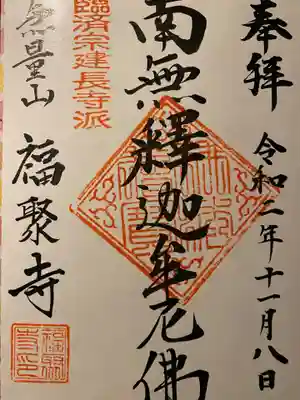 奉拝
令和二年十一月八日
南無釋迦牟尼佛
臨済宗建長寺派
無量山
福聚寺
福聚
寺印